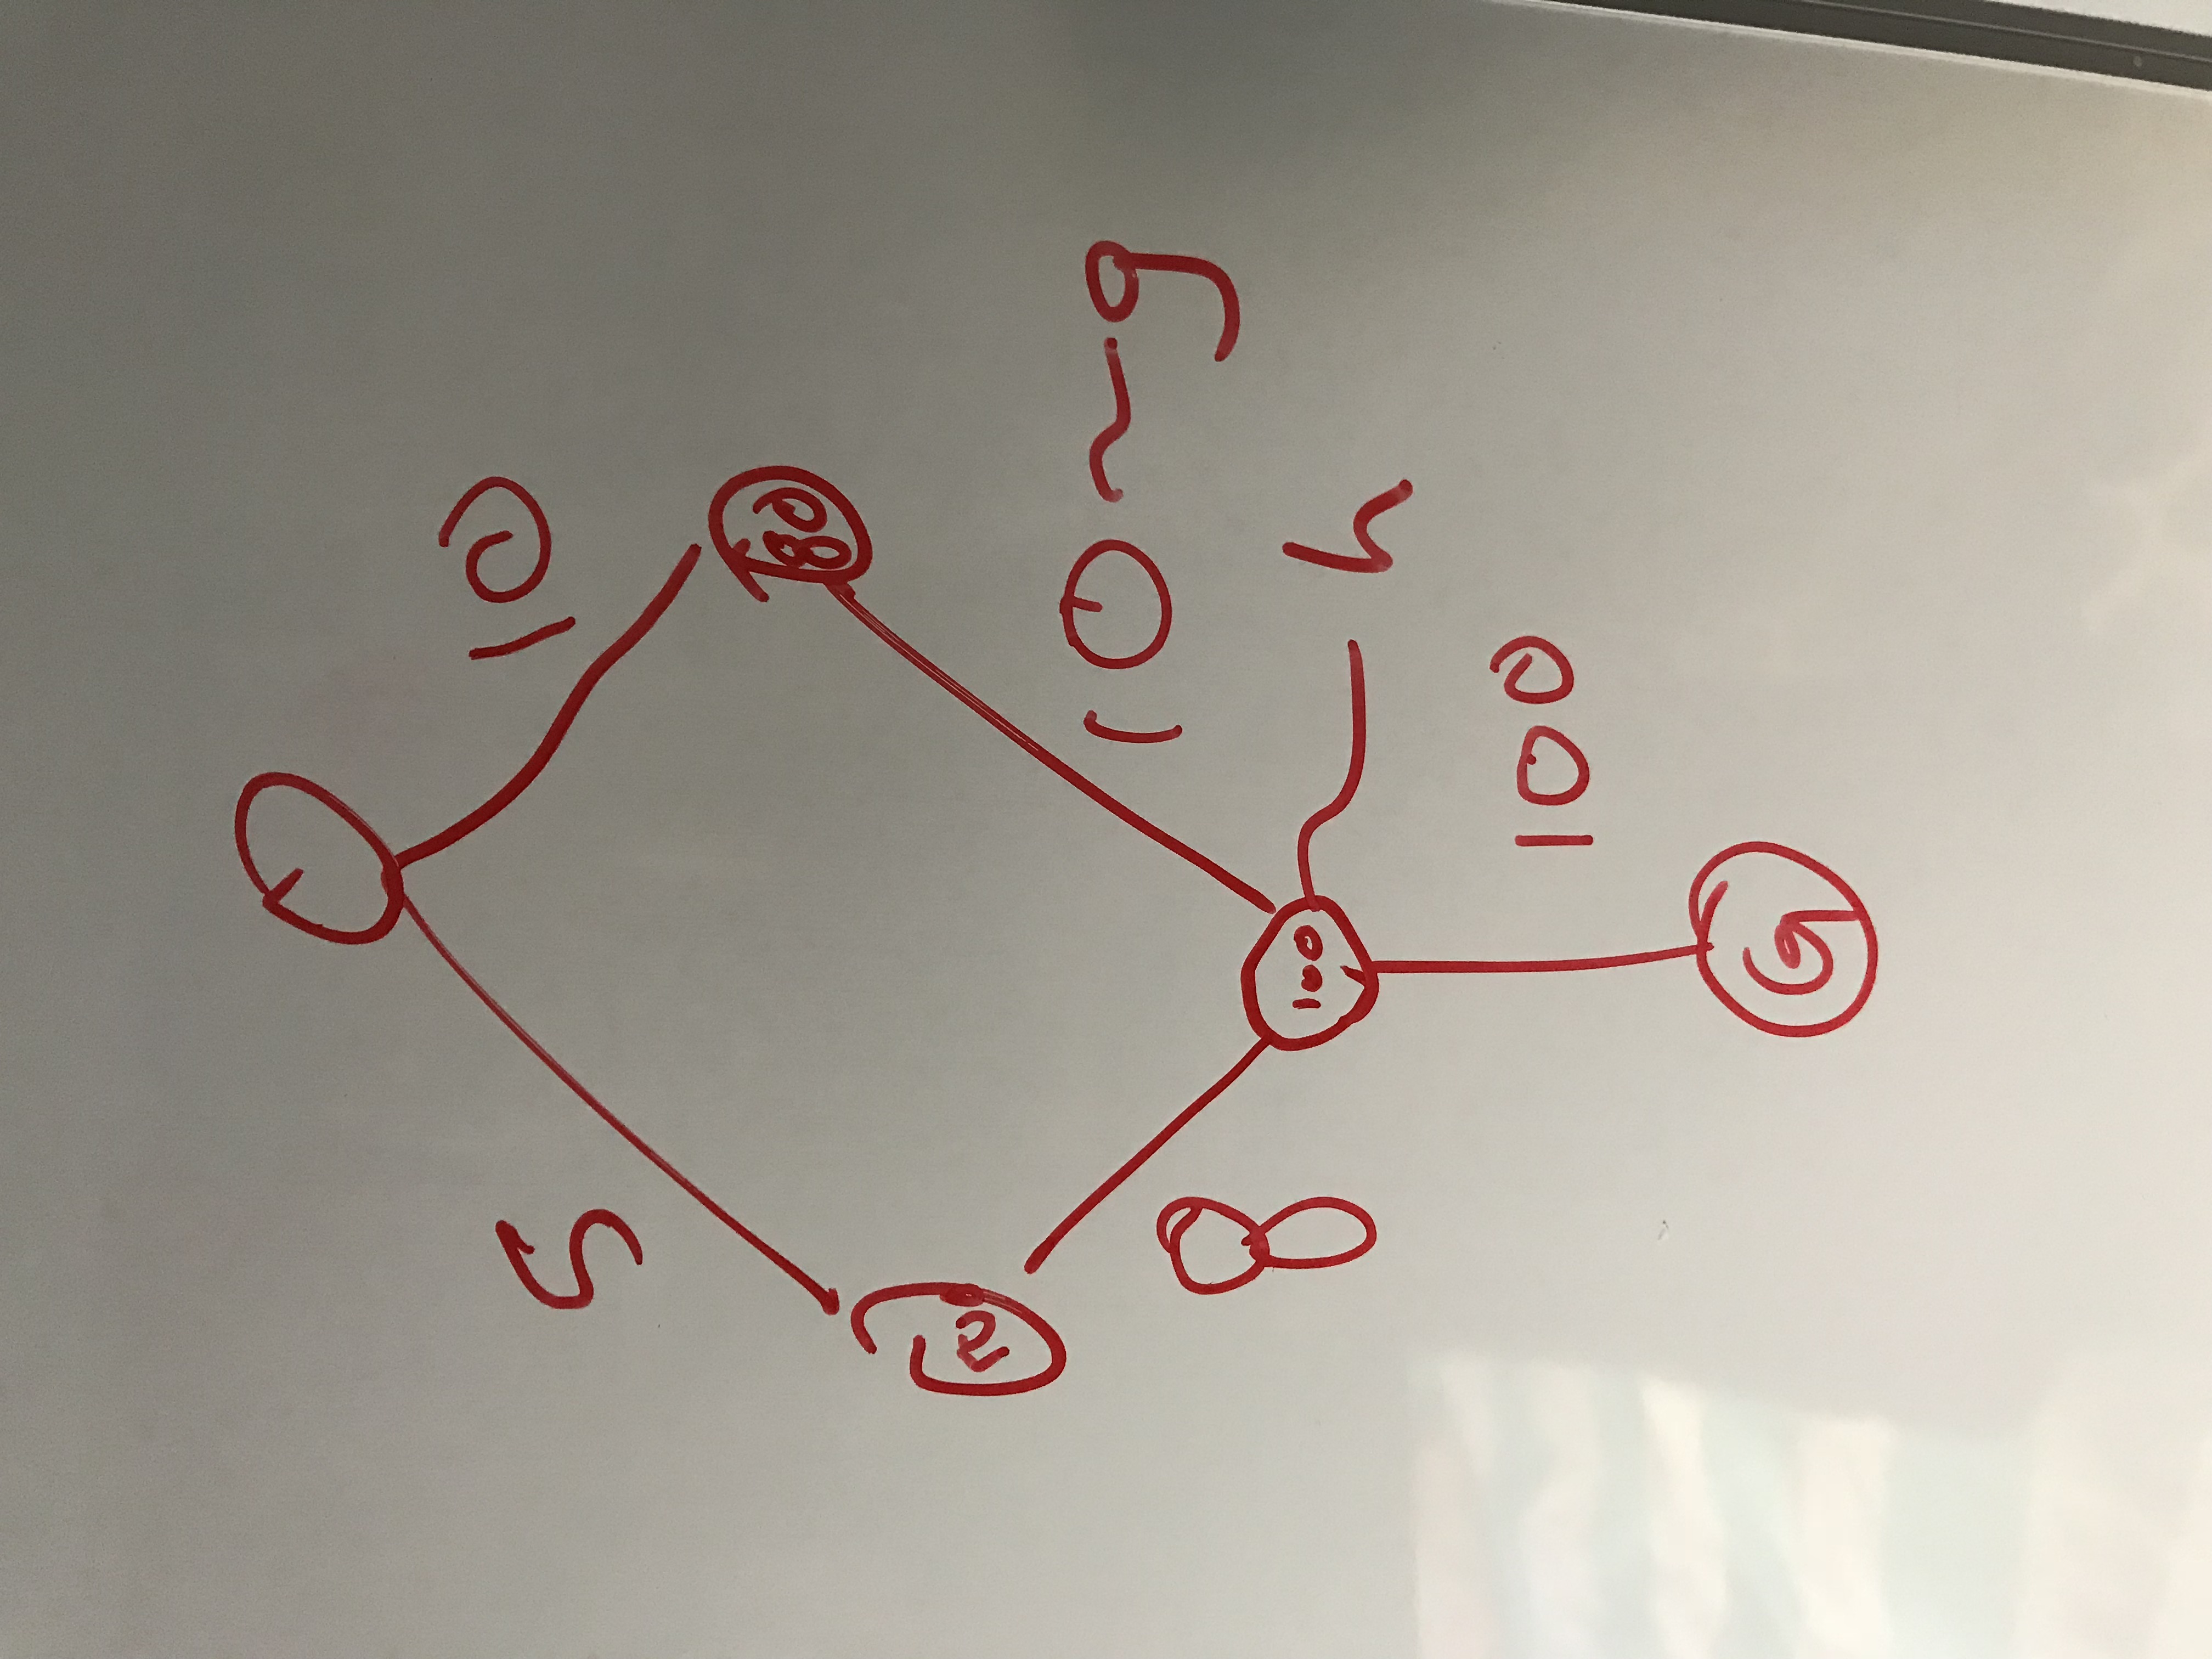 5
10
80
10 ~ g
8
100
h
100
G